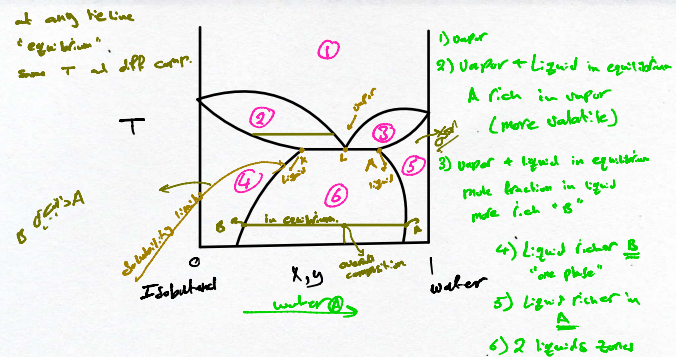 at any tie line
"equilibrium"
same T at diff comp.
T
1
2
3
4
5
6
vapor
liquid
liquid
Solubility limit
B
in equilibrium
A
overall
composition
0
x,y
1
Isobutanol
water
water A
1) vapor
2) vapor + Liquid in equilibrium
A rich in vapor
(more volatile)
3) vapor + liquid in equilibrium
mole fraction in liquid
more rich "B"
4) Liquid richer B
"one phase"
5) Liquid richer in
A
6) 2 liquids zones